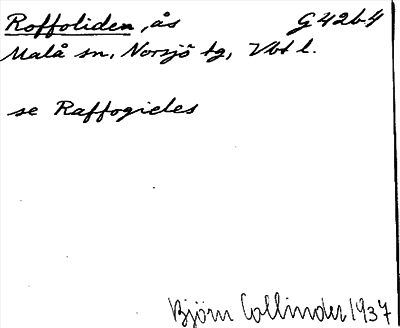 Roffoliden, ås G 42b4
Malå sn, Norsjö tg, Vbt l.
se Raffogieles
Björn Collinder 1937